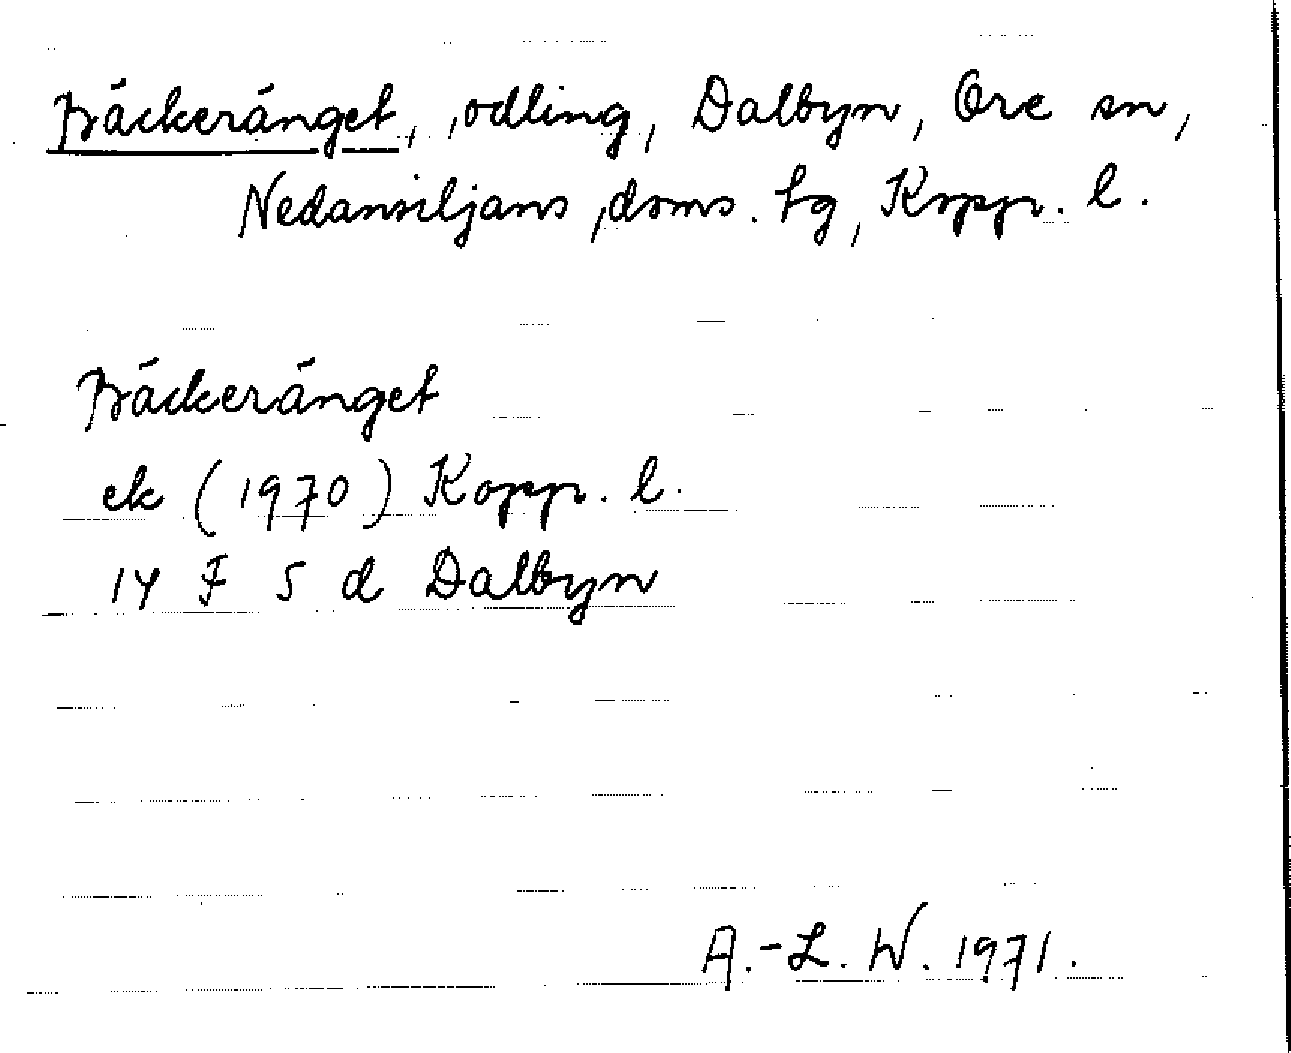 Bäckeränget, odling, Dalbyn, Ore sn,
Nedansiljans doms. tg, Kopp. l.
Bäckeränget
ek (1970) Kopp. l.
14 F 5 d Dalbyn
A.-L. W. 1971.